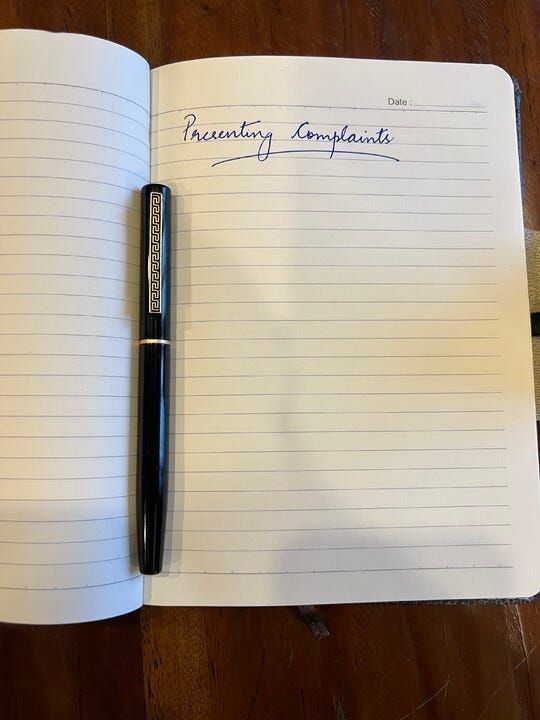 Date :
Presenting Complaints